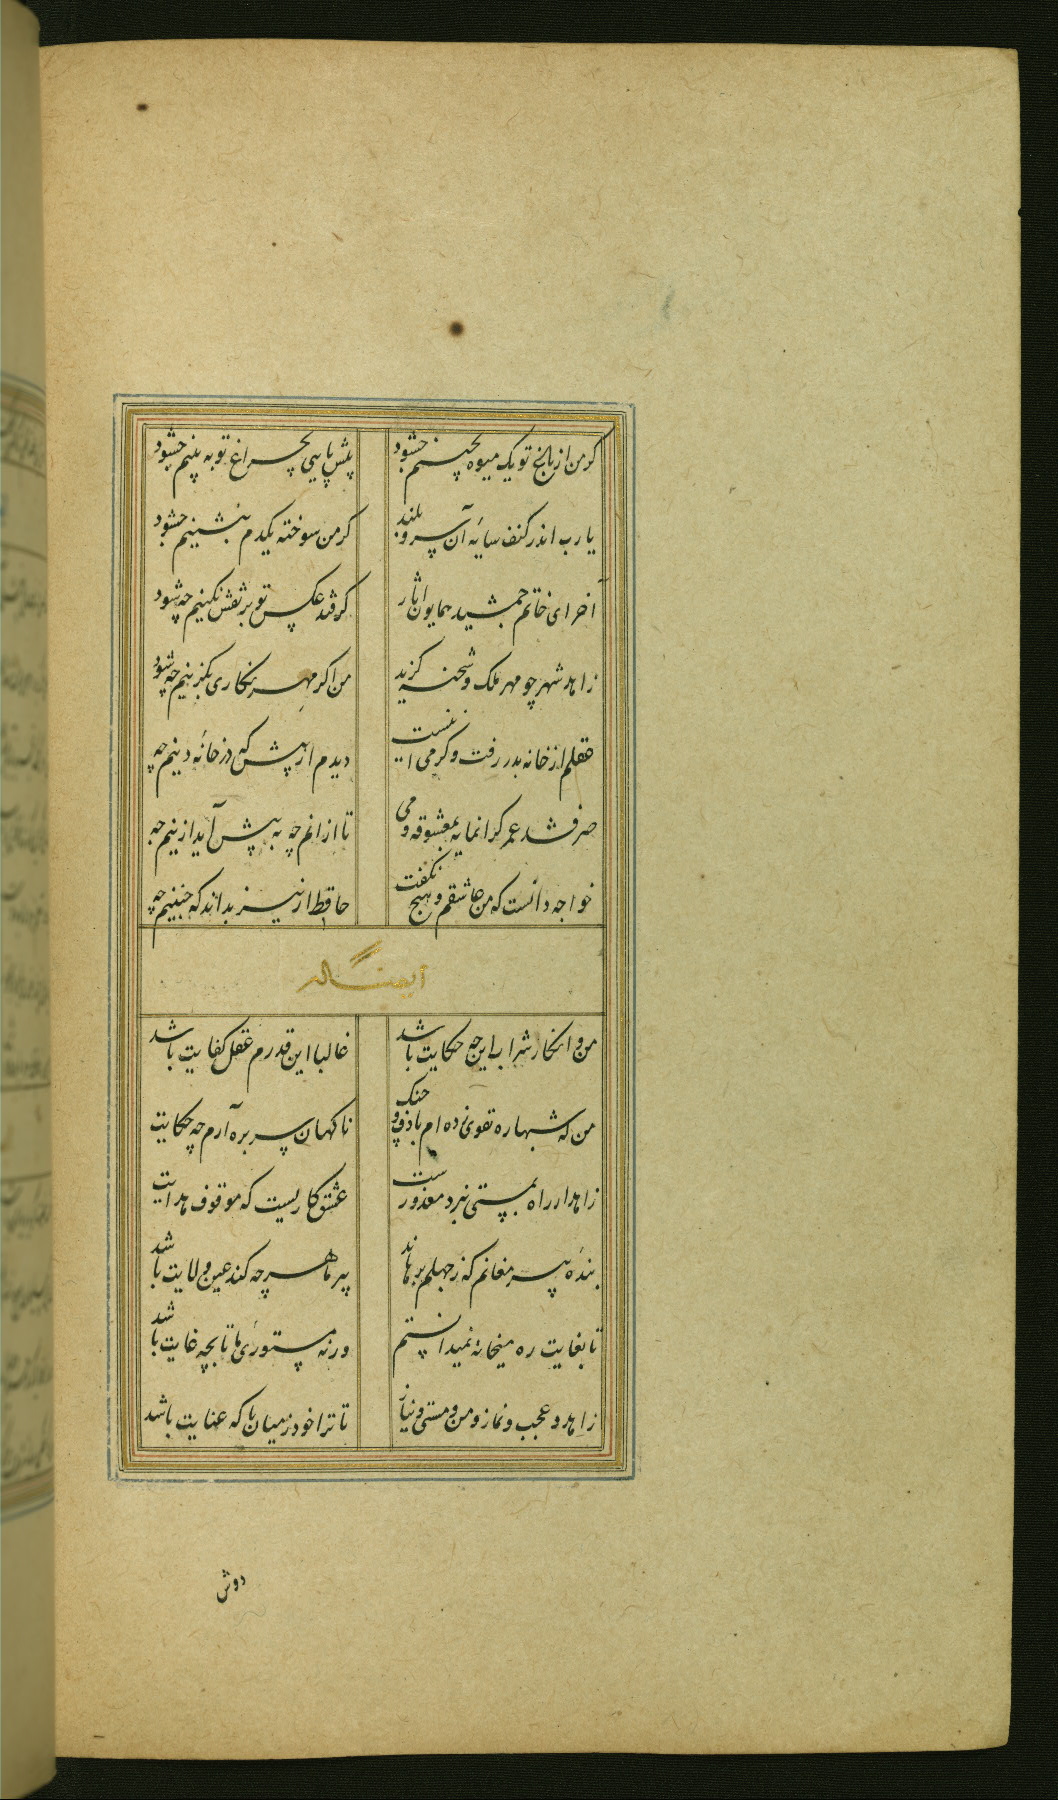 کر من از باغ تو یک میوه بچینم چشود
پیش پایی بچراغ تو به بینم چشود
یا رب اندر کنف سایهٔ آن سرو بلند
کر من سوخته یکدم بنشینم چشود
آخر ای خاتم جمشید همایون اثار
کر فتد عکس تو بر نقش نکینم چه شود
زاهد شهر چو مهر ملک و شحنه کزید
من اکر مهر نکاری بکزینم چه شود
عقلم از خانه بدر رفت و کر می اینست
دیدم از پیش که در خانهٔ دینم چه
صرف شد عمر کرانمایه بمعشوقه و می
تا از انم چه به پیش آید ازینم چه
خواجه دانست که من عاشقم و هیچ نکفت
حافظ ار نیز بداند که چنینم چه
ایضاله
من و انکار شراب این چه حکایت باشد
غالبا این قدرم عقل کفایت باشد
من که شبها ره تقوی زده ام با دف و چنک
ناکهان سر بره آرم چه حکایت
زاهد ار راه بمستی نبرد معذورست
عشق کاریست که موقوف هدایت
بندهٔ پیر مغانم که ز جهلم برهاند
پیر ما هر چه کند عین ولایت باشد
تا بغایت ره میخانه نمیدانستم
ورنه مستوری ما تا بچه غایت باشد
زاهد و عجب و نماز و من و مستی و نیاز
تا ترا خود ز میان با که عنایت باشد
دوش